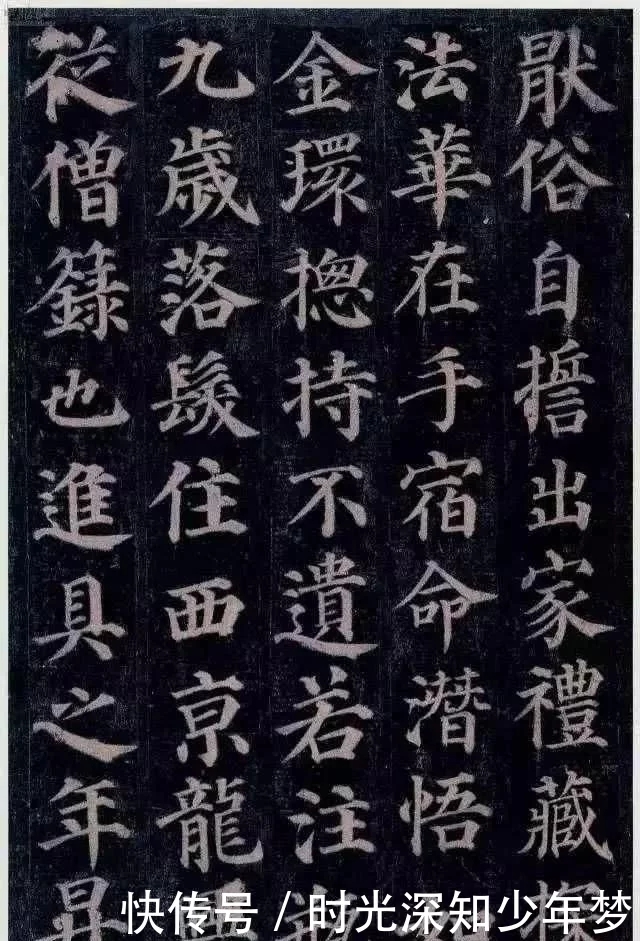 猒俗自誓出家禮藏
法華在手宿命潛悟
金環揔持不遺若注
九歲落髮住西亰龍
從僧籙也進具之年昇
快传号 / 时光深知少年梦